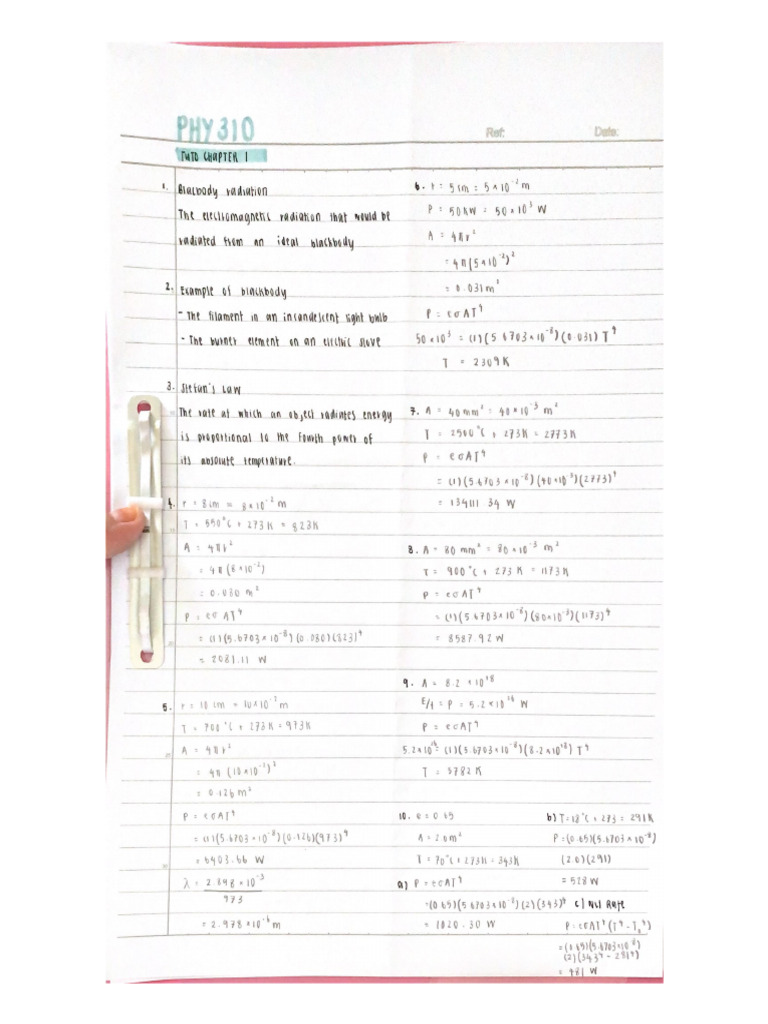 PHY310
Ref: Date:
TUTO CHAPTER 1
1. Blacbody radiation
The electromagnetic radiation that would be
radiated from an ideal blackbody
2. Example of blackbody
- The filament in an incandescent light bulb
- The burner element on an electric stove
3. Stefan's Law
The rate at which an object radiates energy
is proportional to the fourth power of
its absolute temperature.
4. r = 8cm = 8×10⁻² m
T = 550°C + 273K = 823K
A = 4πr²
= 4π(8×10⁻²)
= 0.080 m²
P = eσAT⁴
= (1)(5.6703×10⁻⁸)(0.080)(823)⁴
= 2081.11 W
5. r = 10cm = 10×10⁻² m
T = 700°C + 273K = 973K
A = 4πr²
= 4π(10×10⁻²)²
= 0.126 m²
P = eσAT⁴
= (1)(5.6703×10⁻⁸)(0.126)(973)⁴
= 6403.66 W
λ = 2.898×10⁻³
973
= 2.978×10⁻⁶ m
6. r = 5cm = 5×10⁻² m
P = 50kW = 50×10³ W
A = 4πr²
= 4π(5×10⁻²)²
= 0.031m²
P = eσAT⁴
50×10³ = (1)(5.6703×10⁻⁸)(0.031)T⁴
T = 2309K
7. A = 40mm² = 40×10⁻³ m²
T = 2500°C + 273K = 2773K
P = eσAT⁴
= (1)(5.6703×10⁻⁸)(40×10⁻³)(2773)⁴
= 134111.34 W
8. A = 80mm² = 80×10⁻³ m²
T = 900°C + 273K = 1173K
P = eσAT⁴
= (1)(5.6703×10⁻⁸)(80×10⁻³)(1173)⁴
= 8587.92 W
9. A = 8.2×10¹⁸
E/t = P = 5.2×10²⁶ W
P = eσAT⁴
5.2×10²⁶ = (1)(5.6703×10⁻⁸)(8.2×10¹⁸)T⁴
T = 5782K
10. e = 0.65
A = 2.0m²
T = 70°C + 273K = 343K
a) P = eσAT⁴
= (0.65)(5.6703×10⁻⁸)(2)(343)⁴
= 1020.30 W
b) T = 18°C + 273 = 291K
P = (0.65)(5.6703×10⁻⁸)
(2.0)(291)
= 528W
c) Net Rate
P = eσA(T⁴ - T₀⁴)
= (0.65)(5.6703×10⁻⁸)
(2)(343⁴ - 291⁴)
= 491 W